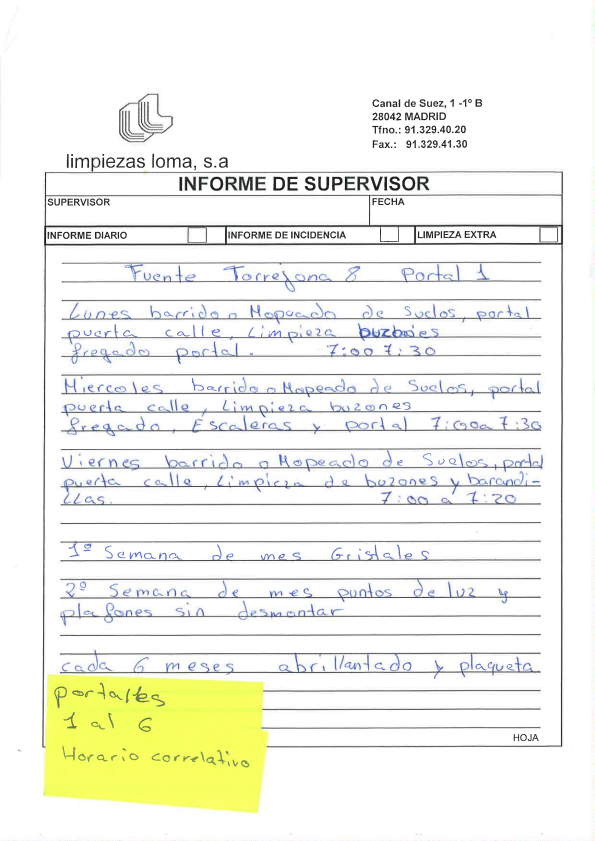 Canal de Suez, 1 -1º B
28042 MADRID
Tfno.: 91.329.40.20
Fax.: 91.329.41.30
limpiezas loma, s.a
INFORME DE SUPERVISOR
SUPERVISOR
FECHA
INFORME DIARIO
INFORME DE INCIDENCIA
LIMPIEZA EXTRA
Fuente Torrejona 8 Portal 1
Lunes barrido o Mopeado de Suelos, portal
puerta calle, Limpieza buzones
fregado portal. 7:00 7:30
Miercoles barrido o Mopeado de Suelos, portal
puerta calle, Limpieza buzones
fregado, Escaleras y portal 7:00a 7:30
Viernes barrido o Mopeado de Suelos, portal
puerta calle, Limpieza de buzones y barandi-
llas. 7:00 a 7:20
1º Semana de mes Cristales
2º Semana de mes puntos de luz y
plafones sin desmontar
cada 6 meses abrillantado y plaqueta
portales
1 al 6
Horario correlativo
HOJA